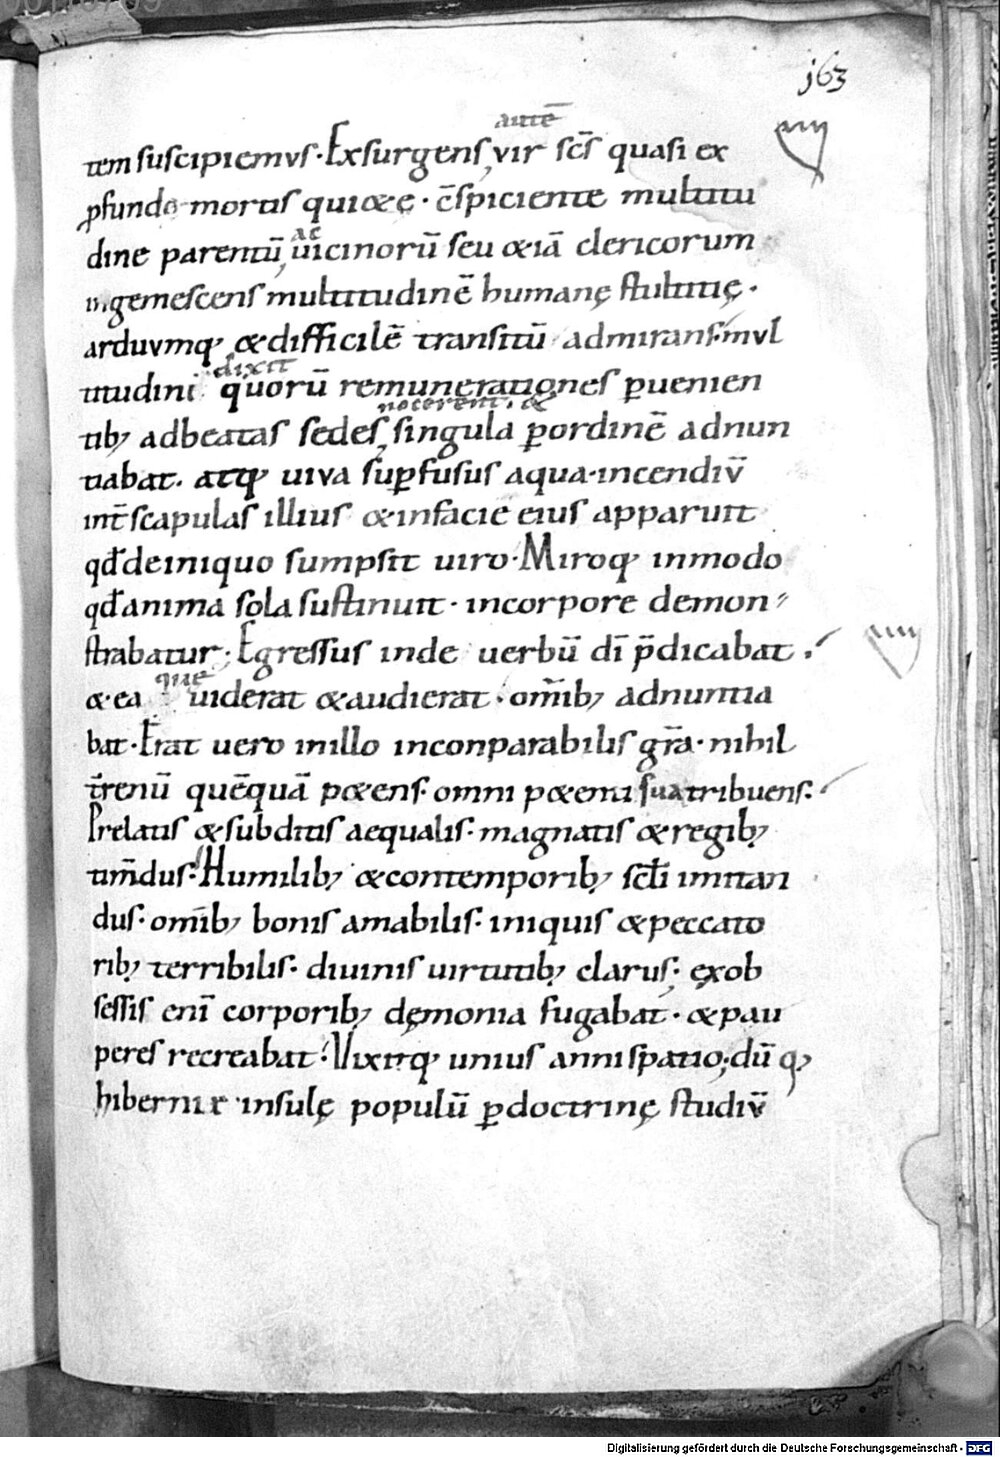 163
autē
tem suscipiemus. Exsurgens, vir sc̄s quasi ex
ꝓfundo mortis quiete. c̄spiciente multitu
ac
dine parentū, uicinorū seu & iā clericorum
ingemescens multitudinē humanę stultitię.
arduvmq, & difficilē transitū admirans. mvl
dixit
titudini quorū remunerationes ꝑuenien
nocerent. &
tib; ad beatas sedes, singula ꝑ ordinē adnun
tiabat. atq, uiva suꝑfusus aqua. incendiū
int̄ scapulas illius & in facie eius apparuit
qđ de iniquo sumpsit uiro. Miroq, in modo
qđ anima sola sustinuit. in corpore demon
strabatur. Egressus inde uerbū dī p̄dicabat.
que
& ea uiderat & audierat. om̄ib; adnuntia
bat. Erat uero in illo inconparabilis gr̄a. nihil
t̄renū quēquā petens. omni petenti sua tribuens.
Prelatis & subditis aequalis. magnatis & regib;
tim̄dus. Humilib; & contemporib; sc̄li imitan
dus. om̄ib; bonis amabilis. iniquis & peccato
rib; terribilis. diuinis uirtutib; clarus; ex ob
sessis enī corporib; dęmonia fugabat. & pau
peres recreabat. Vixitq, unius anni spatio; dū q,
hibernię insulę populū ꝑ doctrinę studiū
Digitalisierung gefördert durch die Deutsche Forschungsgemeinschaft - DFG